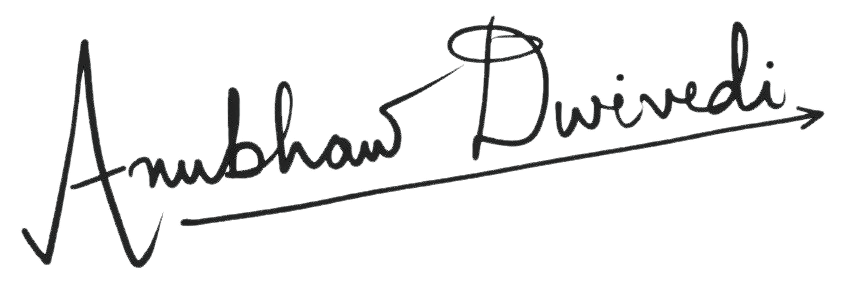 Anubhaw Dwivedi